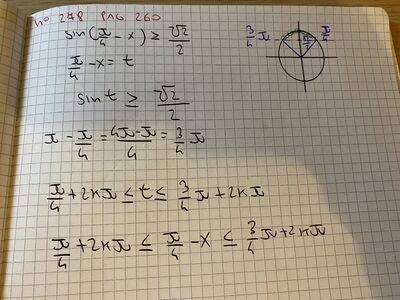 n° 278 PAG 260
sin(π/4 - x) ≥ √2/2
3/4 π π/4
π/4 - x = t
sin t ≥ √2/2
π - π/4 = (4π-π)/4 = 3/4 π
π/4 + 2kπ ≤ t ≤ 3/4 π + 2kπ
π/4 + 2kπ ≤ π/4 - x ≤ 3/4 π + 2kπ